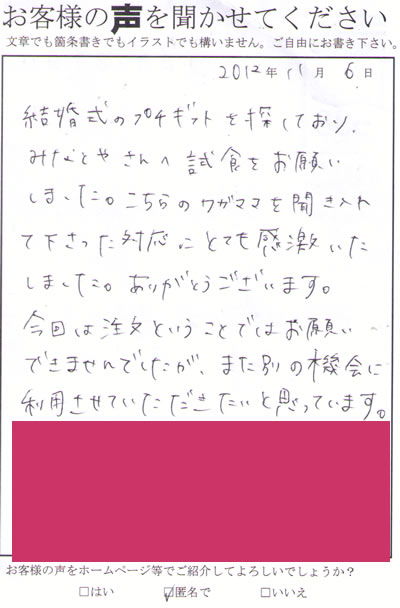 お客様の声を聞かせてください
文章でも箇条書きでもイラストでも構いません。ご自由にお書き下さい。
2012年11月6日
結婚式のプチギフトを探しており、
みなとやさんへ試食をお願い
しました。こちらのワガママを聞き入れ
て下さった対応にとても感激いた
しました。ありがとうございます。
今回は注文ということではお願い
できませんでしたが、また別の機会に
利用させていただきたいと思っています。
お客様の声をホームページ等でご紹介してよろしいでしょうか?
□はい ☑匿名で □いいえ